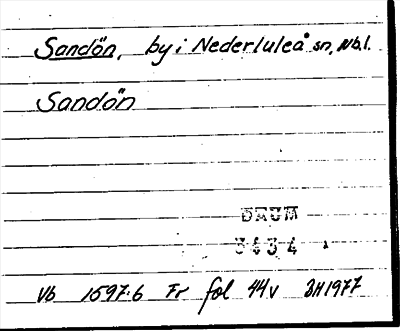 Sandön, by i Nederluleå sn, Nb.l.
Sandön
DAUM
3434
Vb 1597:6 Fr fol 44v BH1977